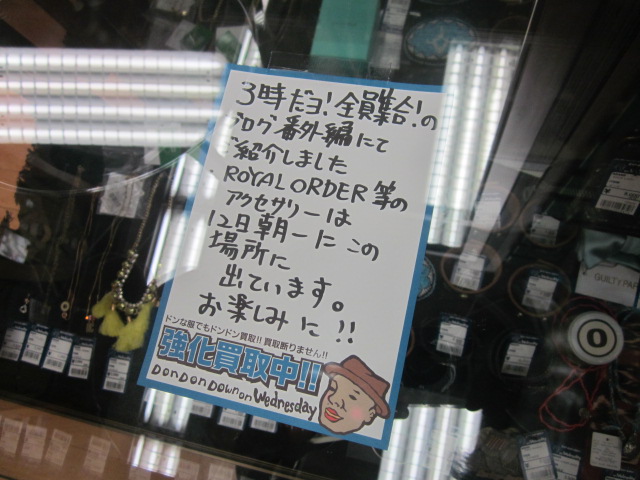 3時だヨ!全員集合!の
ブログ番外編にて
ご紹介しました
ROYAL ORDER 等の
アクセサリーは
12日朝一にこの
場所に
出ています。
お楽しみに!!
ドンな服でもドンドン買取!!買取断りません!!
強化買取中!!
DonDonDown on Wednesday
GUILTY PAR
O